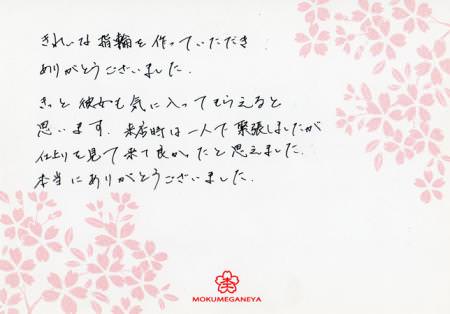 きれいな指輪を作っていただき
ありがとうございました.
きっと彼女も気に入ってもらえると
思います. 来店時は一人で緊張しましたが
仕上りを見て来て良かったと思えました.
本当にありがとうございました.
MOKUMEGANEYA